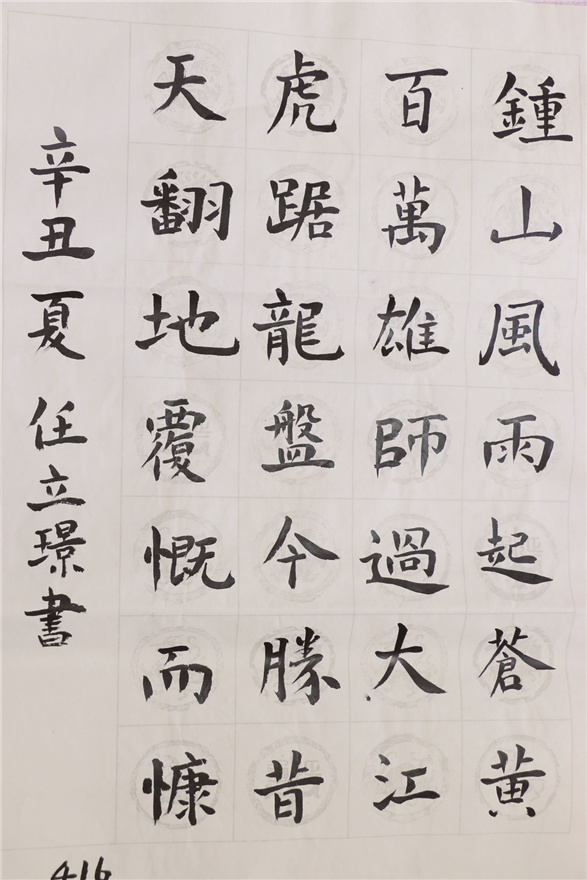 鍾山風雨起蒼黃
百萬雄師過大江
虎踞龍盤今勝昔
天翻地覆慨而慷
辛丑夏 任立璟書
416